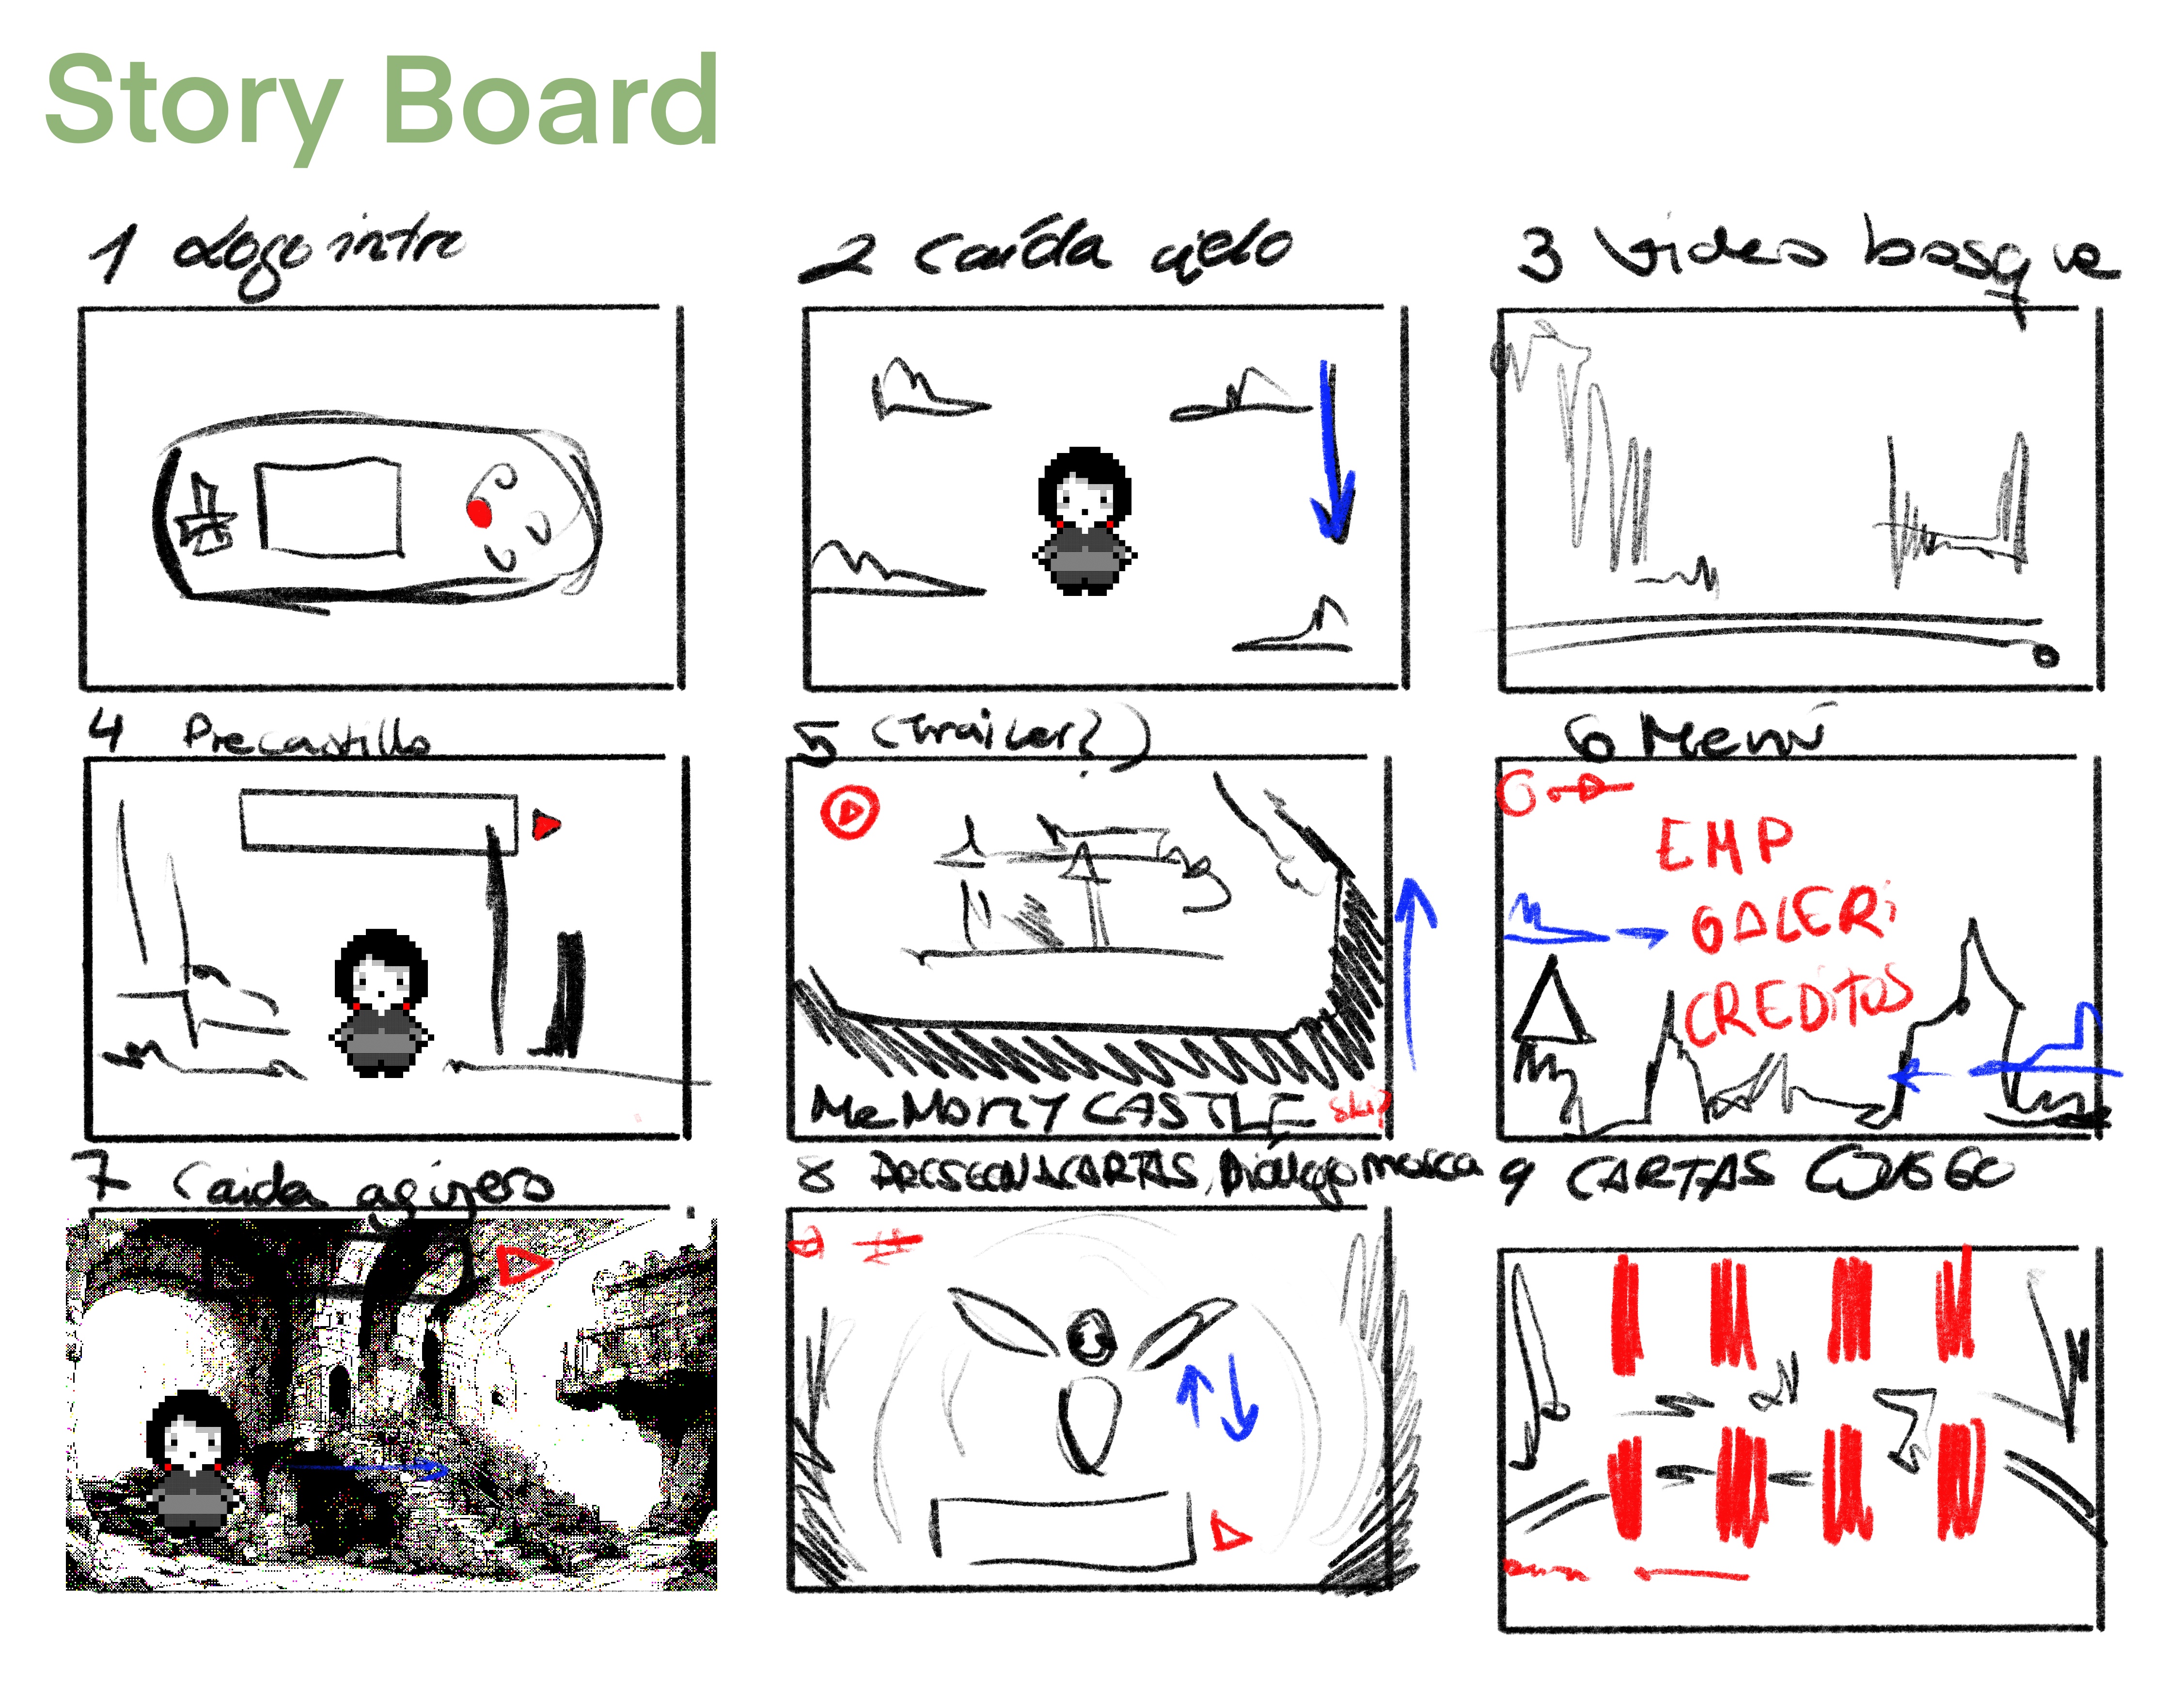 Story Board
1 Logo intro
2 Caída cielo
3 Video bosque
4 Precastillo
5 (Trailer?)
MEMORY CASTLE
6 Menú
EMP
GALERi
CREDiTOS
7 Caida agujero
8 CARTAS, Diálogo mosca
9 CARTAS